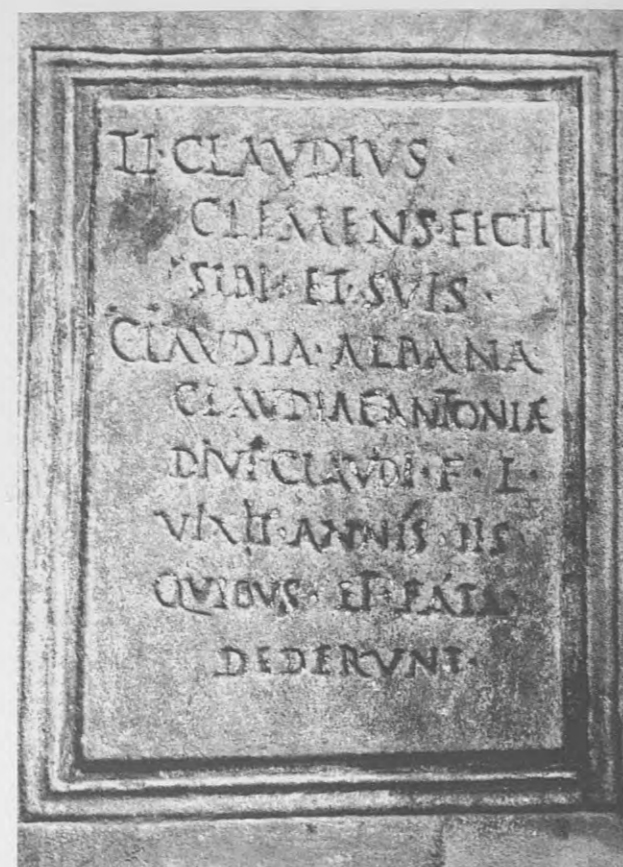 TI·CLAVDIVS·
CLEMENS·FECIT
SIBI·ET·SVIS·
CLAVDIA·ALBANA
CLAVDIAE ANTONIÆ
DIVI·CLAVDI·F·L·
VIXIT·ANNIS·IIS
QVIBVS·ET·FATA·
DEDERVNT·